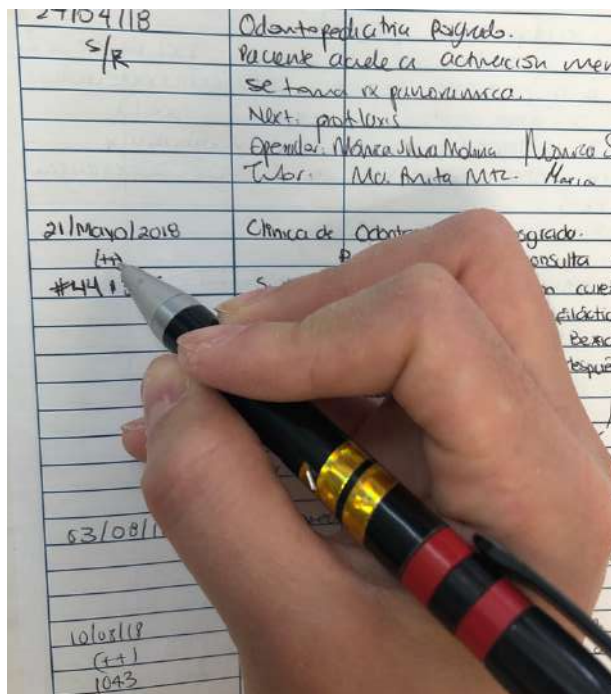 27/04/18 Odontopediatria Posgrado.
S/R Paciente acude a activación men
se toma rx panoramica.
Next: profilaxis
Operador: Mónica Silva Molina Monica S
Tutor: Ma. Anita Mtz. Maria
21/Mayo/2018 Clinica de Odonto sgrado.
(++) P onsulta
#44 S n cure
filáctic
despué
03/08/1
10/08/18
(++)
1043